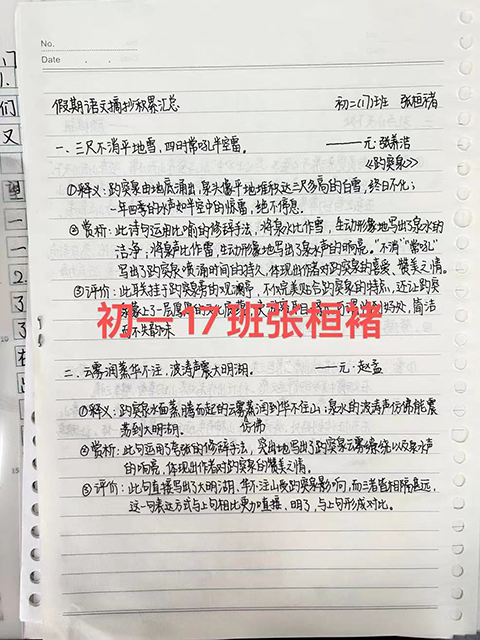 No.
Date
假期语文摘抄积累汇总 初二(17)班 张桓禇
一、三尺不消平地雪,四时常吼半空雷。 ——元·张养浩
《趵突泉》
①释义:趵突泉由地底涌出,泉头像平地堆积达三尺多高的白雪,终日不化;
一年四季的水声如半空中的惊雷,绝不停息。
②赏析:此诗句运用比喻的修辞手法,将泉水比作雪,生动形象地写出了泉水的
洁净;将泉声比作雷,生动形象地写出了泉水声的响亮。"不消""常吼"
写出了趵突泉喷涌时间的持久,体现出作者对趵突泉的喜爱、赞美之情。
③评价:此联挂于趵突泉旁的观澜亭,不仅完美贴合趵突泉的特点,还让趵突
初一17班张桓禇
而不失韵味
二、云雾润蒸华不注,波涛声震大明湖。 ——元·赵孟
①释义:趵突泉水面蒸腾而起的云雾滋润到华不注山;泉水的波涛声仿佛能震
荡到大明湖。 仿佛
②赏析:此句运用了夸张的修辞手法,突出地写出了趵突泉云雾缭绕以及泉水声
的响亮,体现出作者对趵突泉的赞美之情。
③评价:此句直接写出了大明湖、华不注山受趵突泉影响,而三者皆相隔甚远,
这一句表达方式与上句相比更加直接、明了,与上句形成对比。